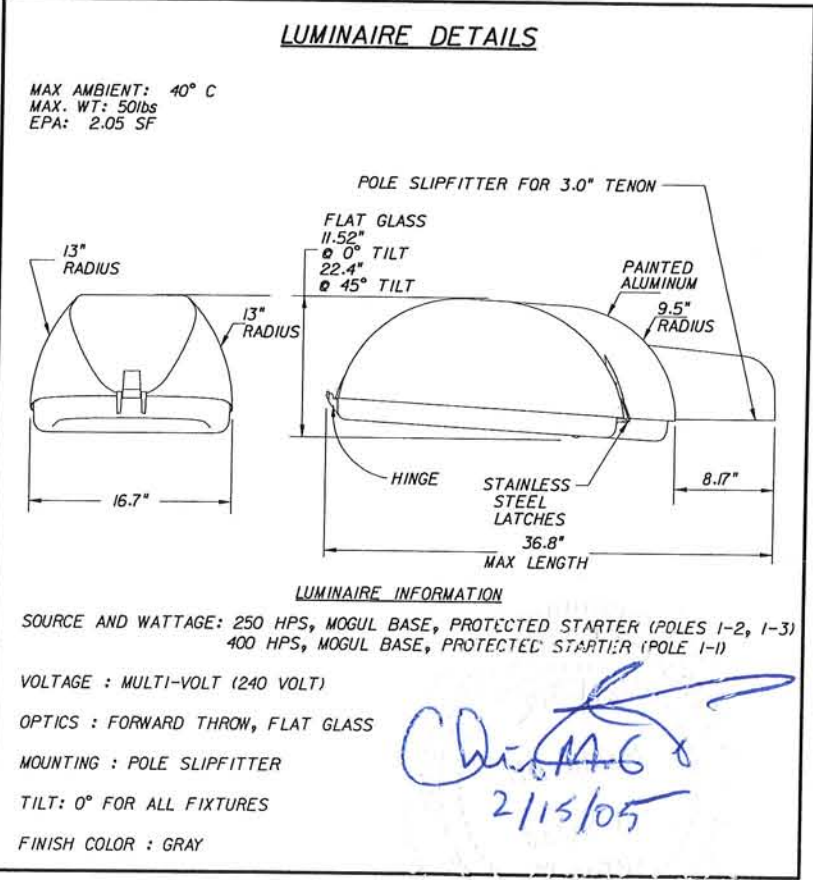 LUMINAIRE DETAILS
MAX AMBIENT: 40° C
MAX. WT: 50lbs
EPA: 2.05 SF
POLE SLIPFITTER FOR 3.0" TENON
FLAT GLASS
11.52"
@ 0° TILT
22.4"
@ 45° TILT
13"
RADIUS
13"
RADIUS
PAINTED
ALUMINUM
9.5"
RADIUS
HINGE
STAINLESS
STEEL
LATCHES
8.17"
16.7"
36.8"
MAX LENGTH
LUMINAIRE INFORMATION
SOURCE AND WATTAGE: 250 HPS, MOGUL BASE, PROTECTED STARTER (POLES 1-2, 1-3)
400 HPS, MOGUL BASE, PROTECTED STARTER (POLE 1-1)
VOLTAGE : MULTI-VOLT (240 VOLT)
OPTICS : FORWARD THROW, FLAT GLASS
MOUNTING : POLE SLIPFITTER
TILT: 0° FOR ALL FIXTURES
FINISH COLOR : GRAY
2/15/05